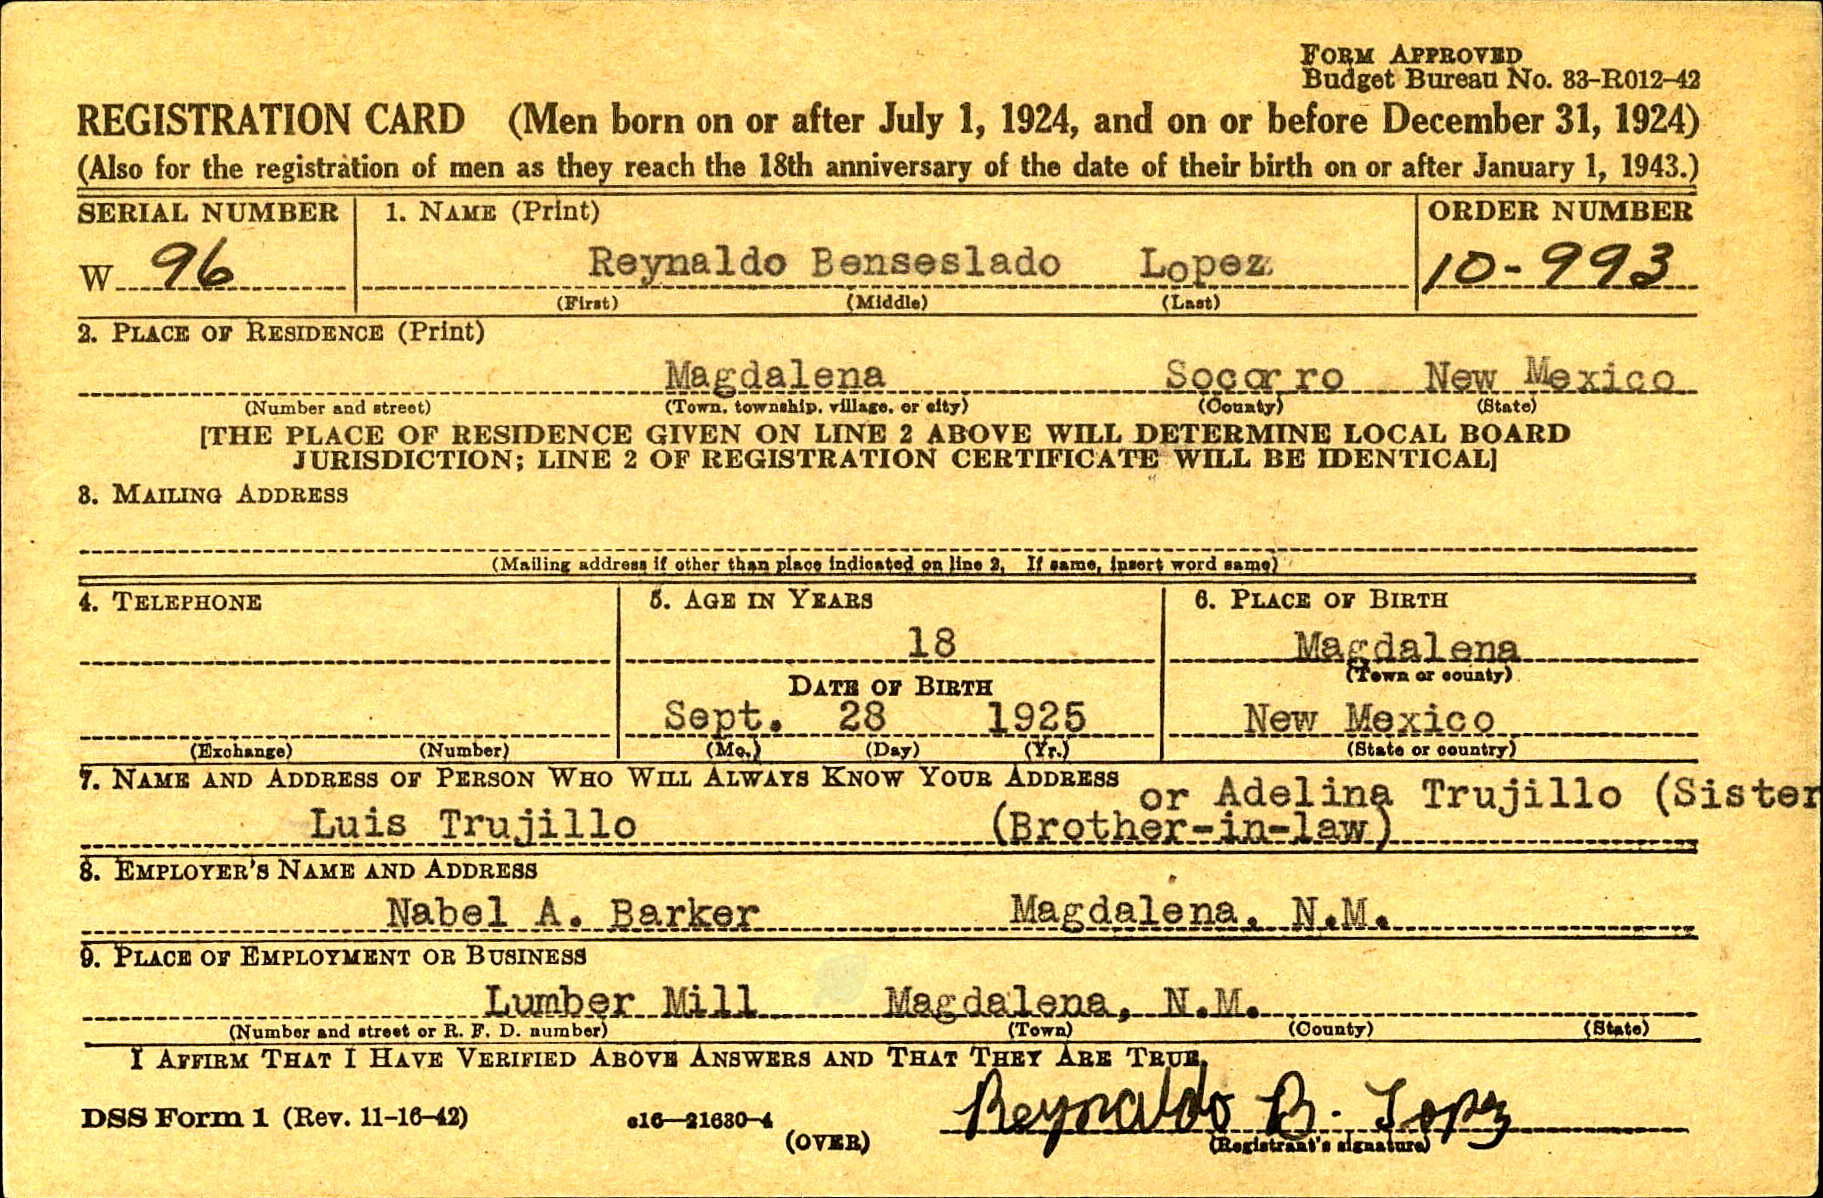 FORM APPROVED
Budget Bureau No. 33-R012-42
REGISTRATION CARD (Men born on or after July 1, 1924, and on or before December 31, 1924)
(Also for the registration of men as they reach the 18th anniversary of the date of their birth on or after January 1, 1943.)
SERIAL NUMBER 1. NAME (Print) ORDER NUMBER
W 96 Reynaldo Benseslado Lopez 10-993
(First) (Middle) (Last)
2. PLACE OF RESIDENCE (Print)
Magdalena Socorro New Mexico
(Number and street) (Town, township, village, or city) (County) (State)
[THE PLACE OF RESIDENCE GIVEN ON LINE 2 ABOVE WILL DETERMINE LOCAL BOARD
JURISDICTION; LINE 2 OF REGISTRATION CERTIFICATE WILL BE IDENTICAL]
3. MAILING ADDRESS
(Mailing address if other than place indicated on line 2. If same, insert word same)
4. TELEPHONE 5. AGE IN YEARS 6. PLACE OF BIRTH
18 Magdalena
DATE OF BIRTH (Town or county)
Sept. 28 1925 New Mexico
(Exchange) (Number) (Mo.) (Day) (Yr.) (State or country)
7. NAME AND ADDRESS OF PERSON WHO WILL ALWAYS KNOW YOUR ADDRESS
or Adelina Trujillo (Sister
Luis Trujillo (Brother-in-law)
8. EMPLOYER'S NAME AND ADDRESS
Nabel A. Barker Magdalena, N.M.
9. PLACE OF EMPLOYMENT OR BUSINESS
Lumber Mill Magdalena, N.M.
(Number and street or R. F. D. number) (Town) (County) (State)
I AFFIRM THAT I HAVE VERIFIED ABOVE ANSWERS AND THAT THEY ARE TRUE.
Reynaldo B. Lopez
DSS Form 1 (Rev. 11-16-42) c16-21630-4 (OVER) (Registrant's signature)